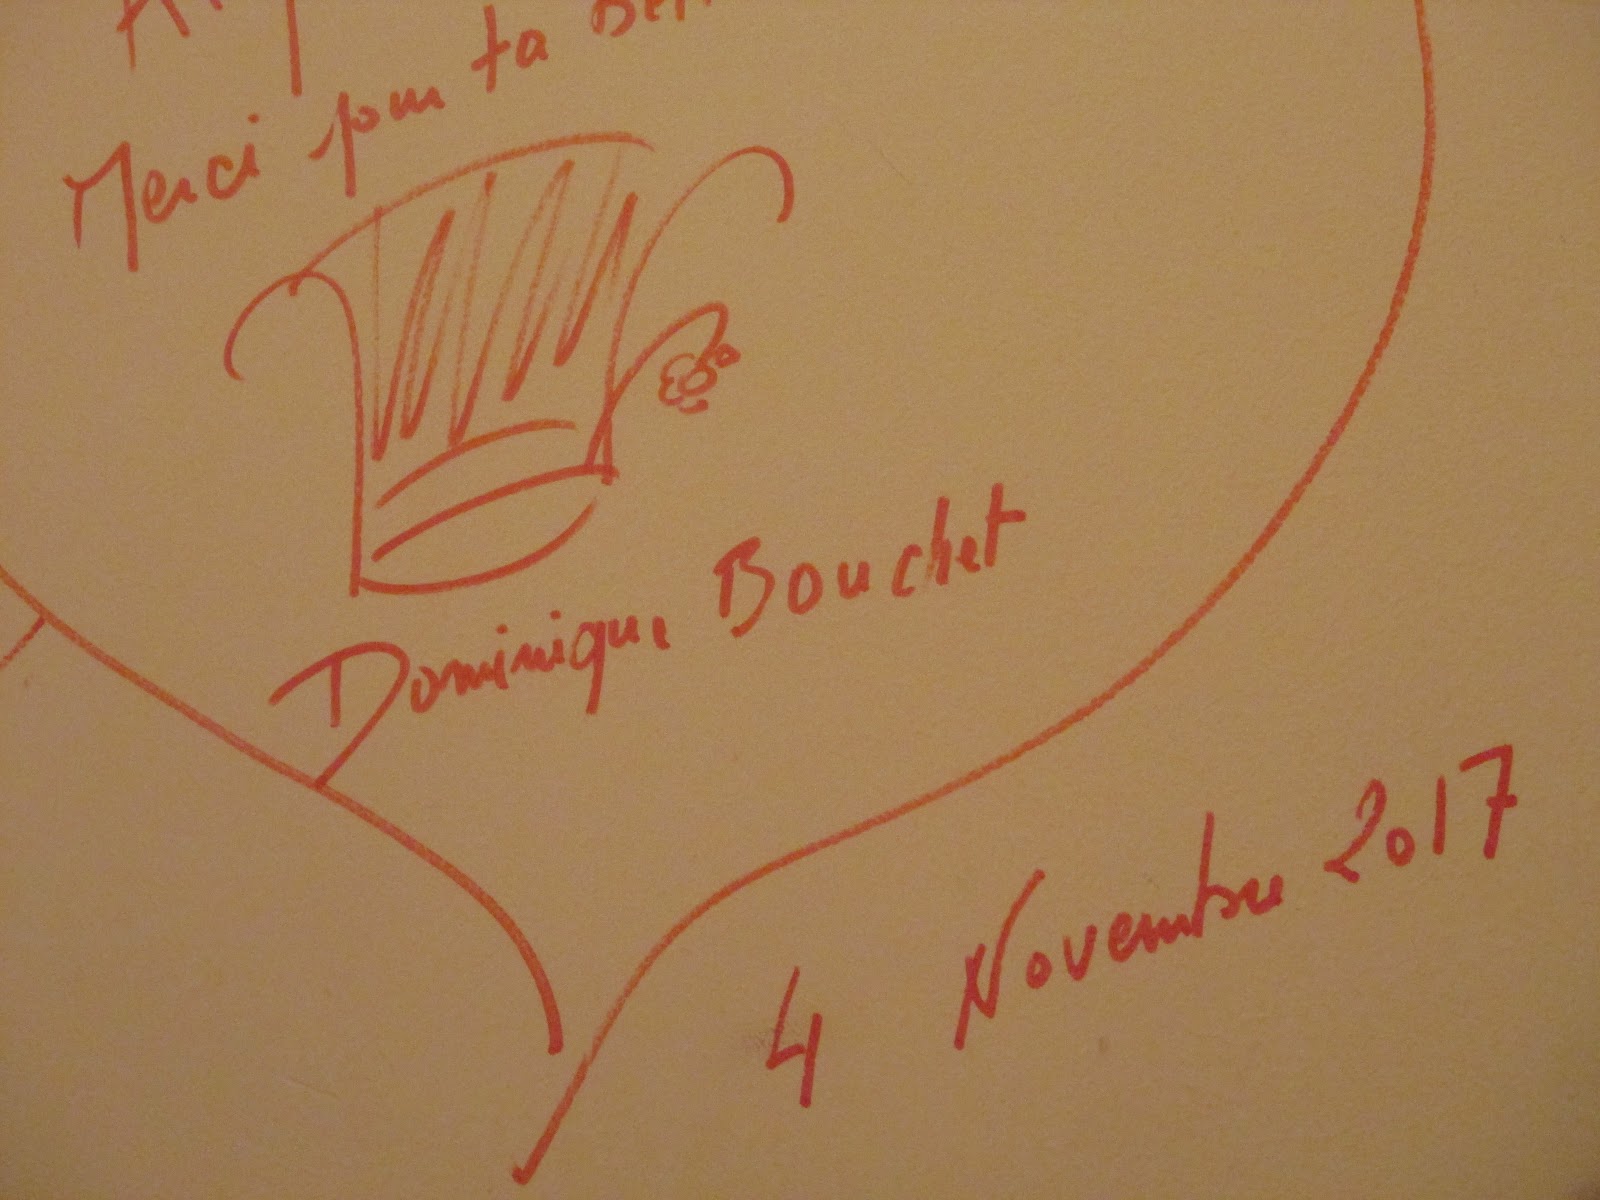 Merci pour ta
Dominique Bouchet
4 Novembre 2017